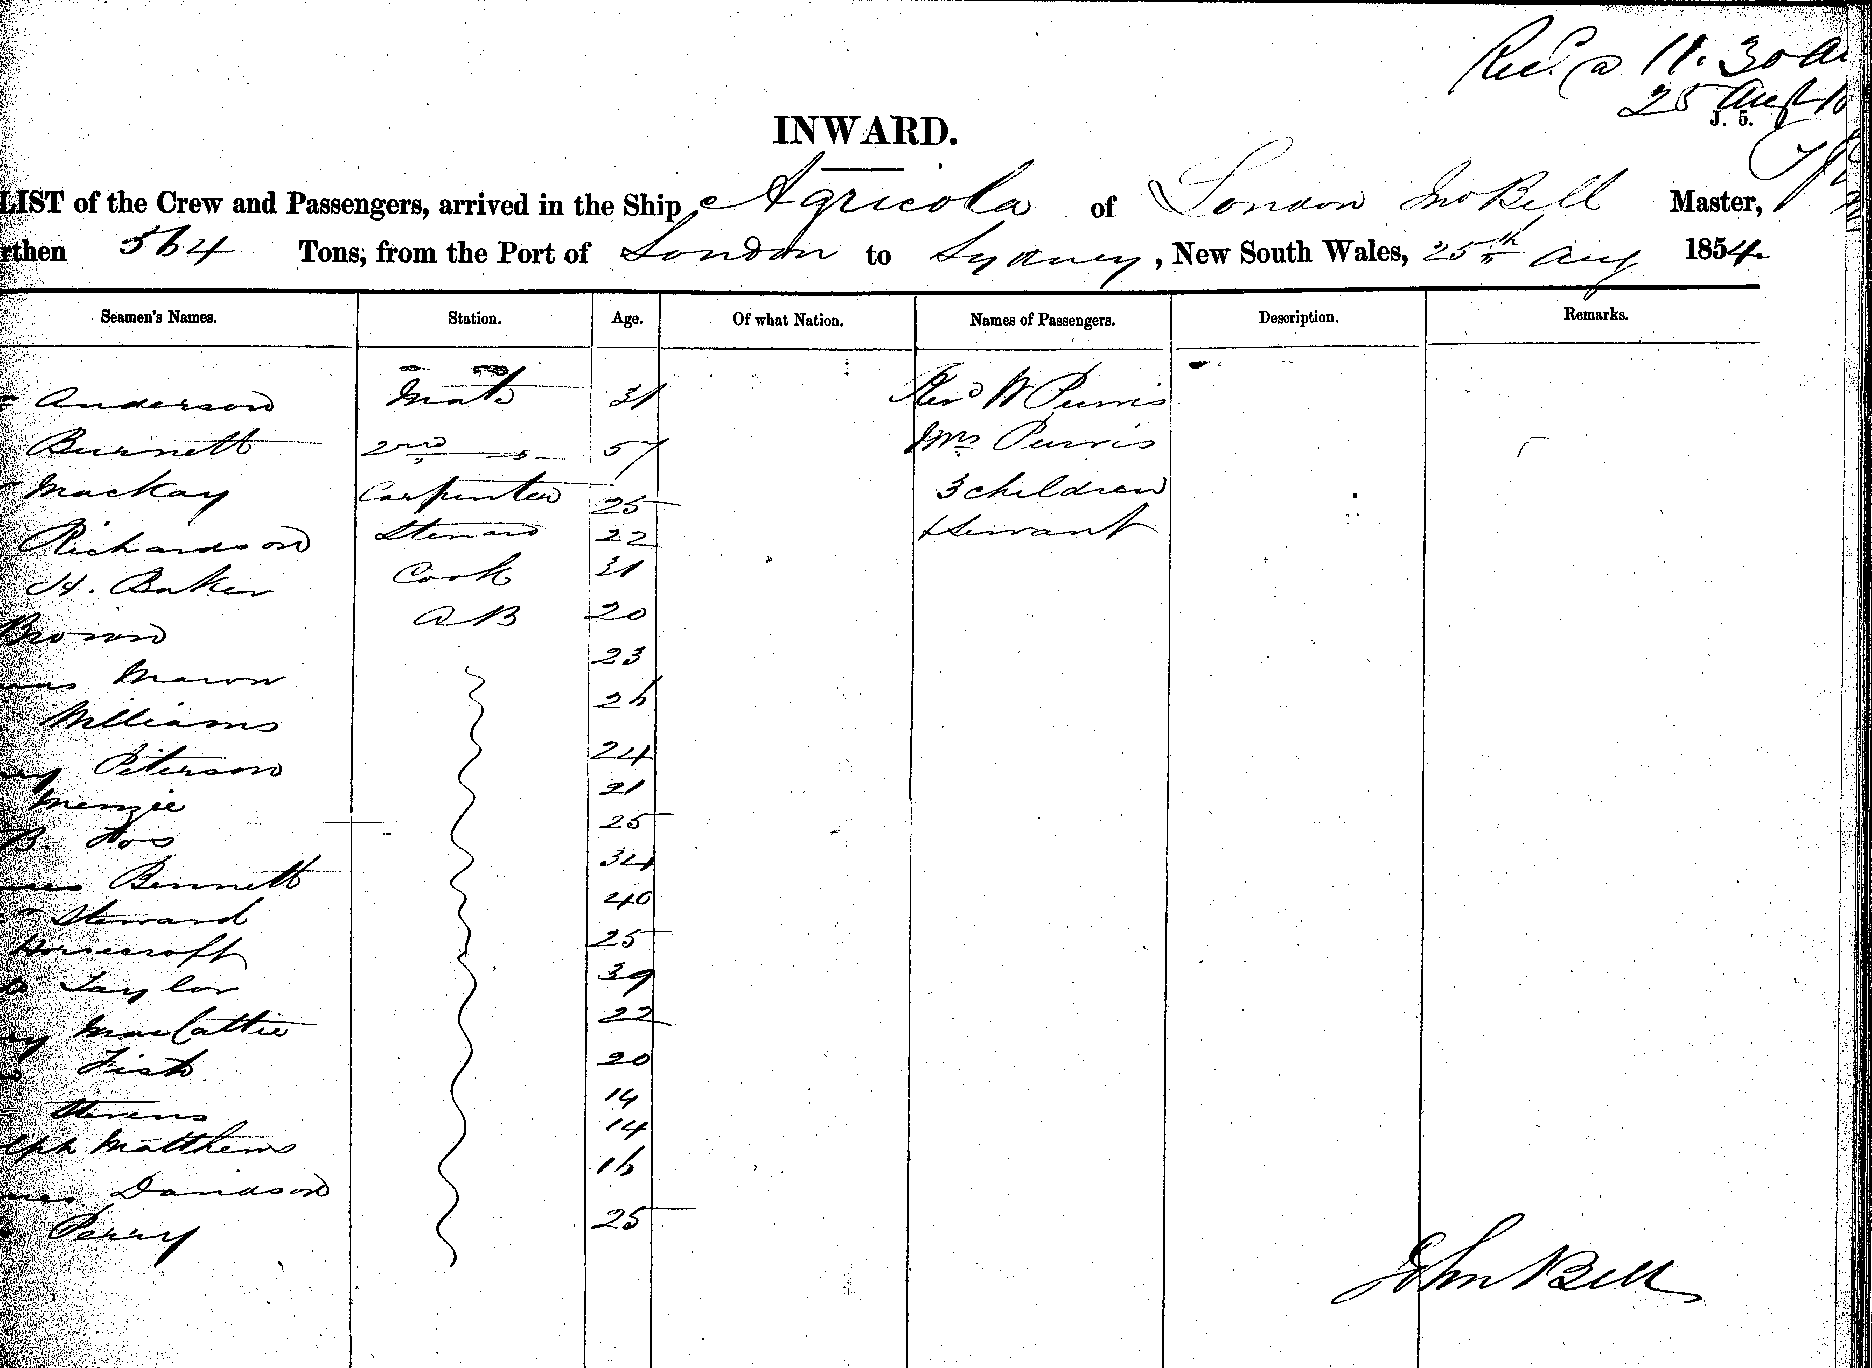 Rec. @ 11.30 A
25 Aug
J. 5.
INWARD.
LIST of the Crew and Passengers, arrived in the Ship Agricola of London Jno Bell Master,
rthen 564 Tons, from the Port of London to Sydney, New South Wales, 25th Aug 1854
Seamen's Names. Station. Age. Of what Nation. Names of Passengers. Description. Remarks.
Anderson Mate 31 Revd W Purvis
Burnett 2nd 57 Mrs Purvis
Mackay Carpenter 25 3 children
Richardson Steward 22 Servant
H. Baker Cook 31
Brown AB 20
Mason 23
Williams 26
Peterson 24
Menzie 21
B 25
Bennett 34
Steward 40
Horsecroft 25
Taylor 39
22
Fisk 20
Stevens 14
Matthews 14
Davidson 16
Perry 25
John Bell